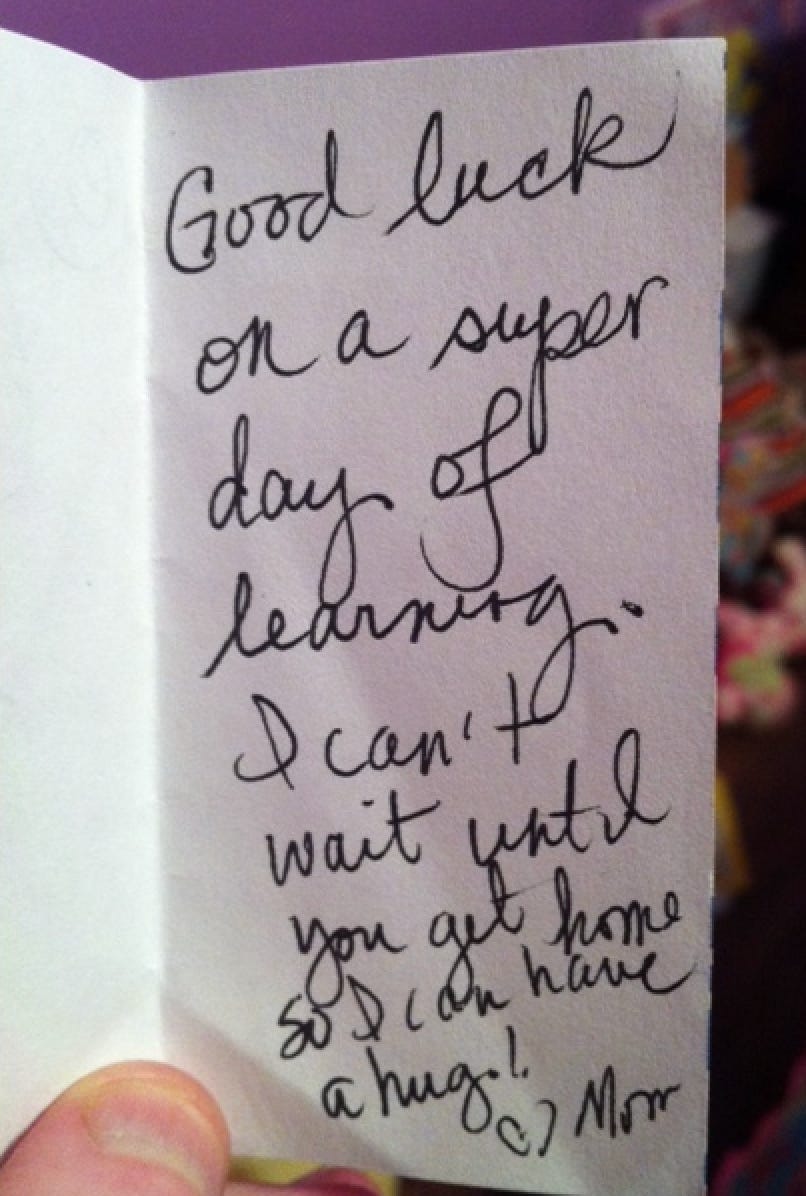 Good luck
on a super
day of
learning.
I can't
wait until
you get home
so I can have
a hug!
♡ Mom